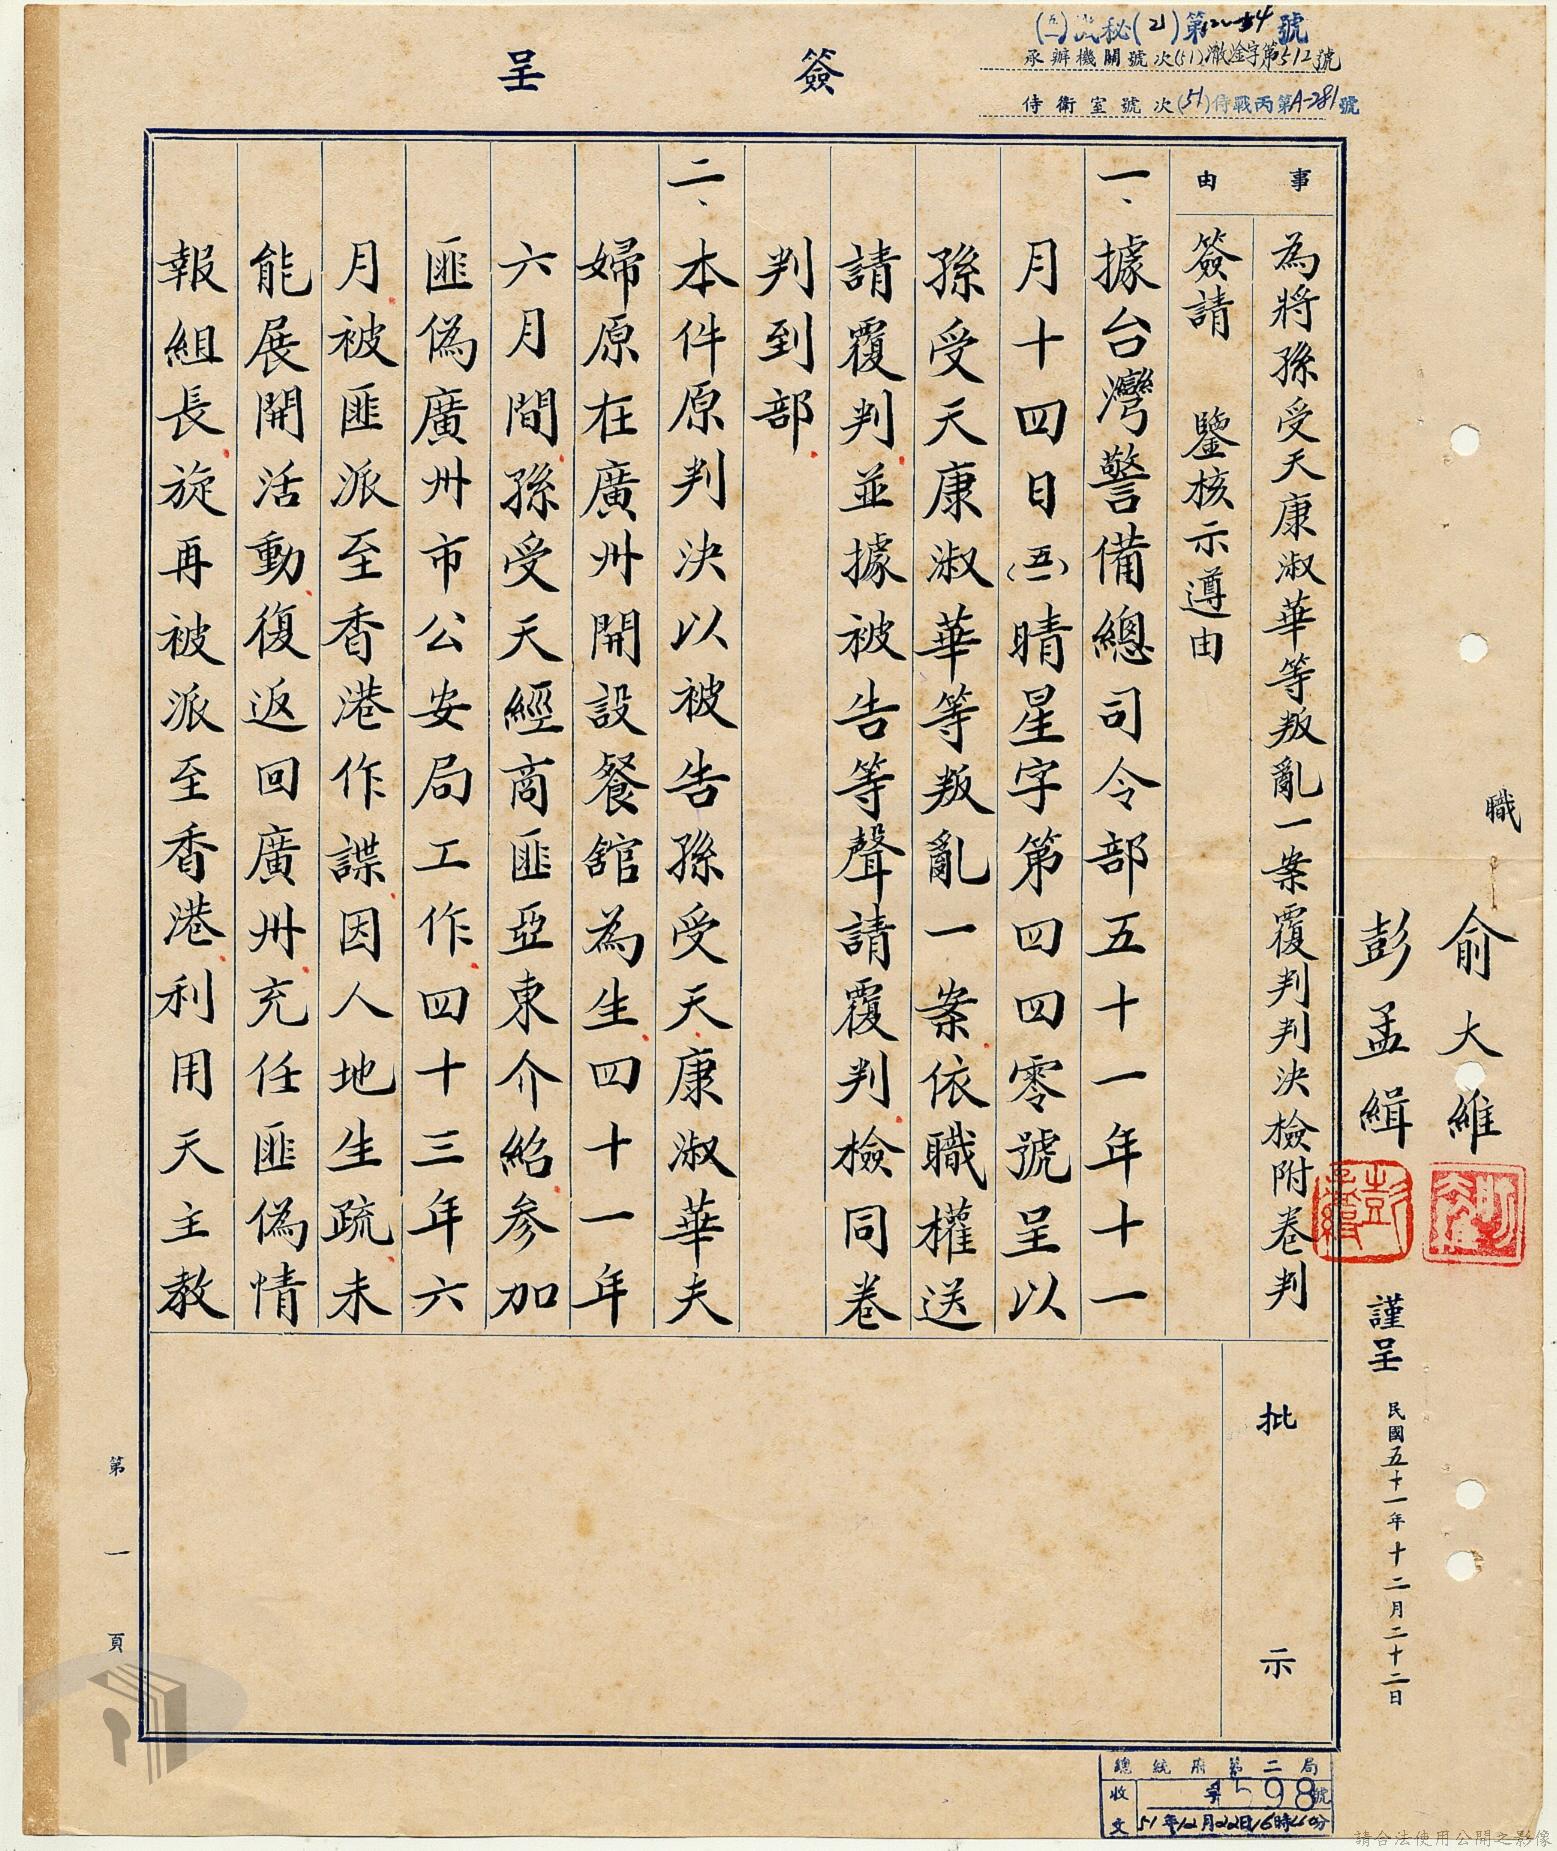 簽呈
承辦機關號次(51)澈淦字第512號
侍衛室號次(51)侍戰丙第A-281號
職
俞大維
彭孟緝
謹呈
民國五十一年十二月二十二日
事由
為將孫受天康淑華等叛亂一案覆判判決檢附卷判
簽請 鑒核示遵由
一、據台灣警備總司令部五十一年十一
月十四日(五一)晴星字第四四零號呈以
孫受天康淑華等叛亂一案依職權送
請覆判並據被告等聲請覆判檢同卷
判到部
二、本件原判決以被告孫受天康淑華夫
婦原在廣州開設餐舘為生四十一年
六月間孫受天經商匪亞東介紹參加
匪偽廣州市公安局工作四十三年六
月被匪派至香港作諜因人地生疏未
能展開活動復返回廣州充任匪偽情
報組長旋再被派至香港利用天主教
批示
第一頁
總統府第二局
收文
598號
51年12月22日16時40分
請合法使用公開之影像